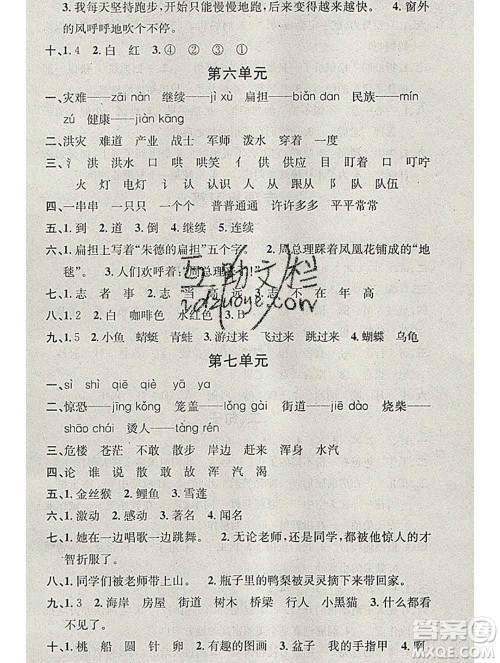 3. 我每天坚持跑步，开始只能慢慢地跑，后来变得越来越快。 4. 窗外
的风呼呼地吹个不停。
十、1. 4 2. 白 红 3. ④ ② ① ③
第六单元
一、灾难——zāi nàn 继续——jì xù 扁担——biǎn dan 民族——mín
zú 健康——jiàn kāng
二、洪灾 难道 产业 战士 军师 泼水 穿着 一度
三、氵 洪 洪水 口 哄 哄笑 口 呐 呐喊 目 盯 盯着 口 叮 叮咛
火 灯 电灯 讠 认 认识 人 从 跟从 阝 队 队伍
四、一串串 一只只 一个个 普普通通 许许多多 平平常常
五、1. 到 2. 道 3. 倒 4. 继续 5. 连续
六、1. 扁担上写着“朱德的扁担”五个字。 2. 周总理踩着凤凰花铺成的“地
毯”。 3. 人们欢呼着：“周总理
七、1. 志 者 事 2. 志 当 高 远 3. 志 不 在 年 高
八、1. 1 2. 白 咖啡色 水红色
九、1. 5 2. 小鱼 蜻蜓 青蛙 3. 游过来 飞过来 跳过来 4. 蝴蝶 乌龟
第七单元
一、sì shì qiē diē yā ya
二、惊恐——jīng kǒng 笼盖——lǒng gài 街道——jiē dào 烧柴——
shāo chái 烫人——tàng rén
三、危楼 苍茫 不敢 散步 岸边 赶来 浑身 水汽
四、论 谁 说 散 敢 故 浑 汽 渴
五、1. 金丝猴 2. 鲤鱼 3. 雪莲
六、1. 激动 2. 感动 3. 著名 4. 闻名
七、1. 她在一边唱歌一边跳舞。 2. 无论老师，还是同学，都对他惊人的才
智折服了。
八、1. 同学们被老师带上山。 2. 瓶子里的鸭梨被灵灵摘下来带回家。
九、1. 3 2. 海岸 房屋 街道 树木 桥梁 小黑猫 3. 什么都看
不见了。
十、1. 桃 船 圆 针 卵 2. 有趣的图画 3. 盆子 我的手指甲 4. 啊
互助文栏
hdzuoye.com
答案圈